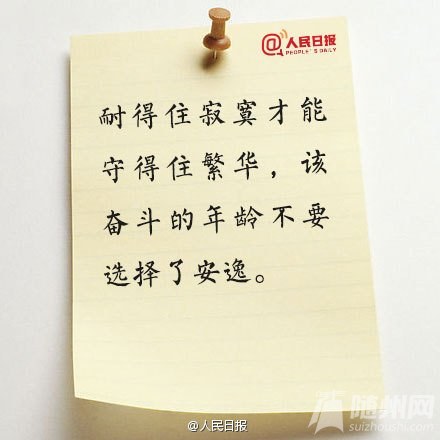 @人民日报
PEOPLE'S DAILY
耐得住寂寞才能
守得住繁华，该
奋斗的年龄不要
选择了安逸。
@人民日报
随州网
suizhoushi.com